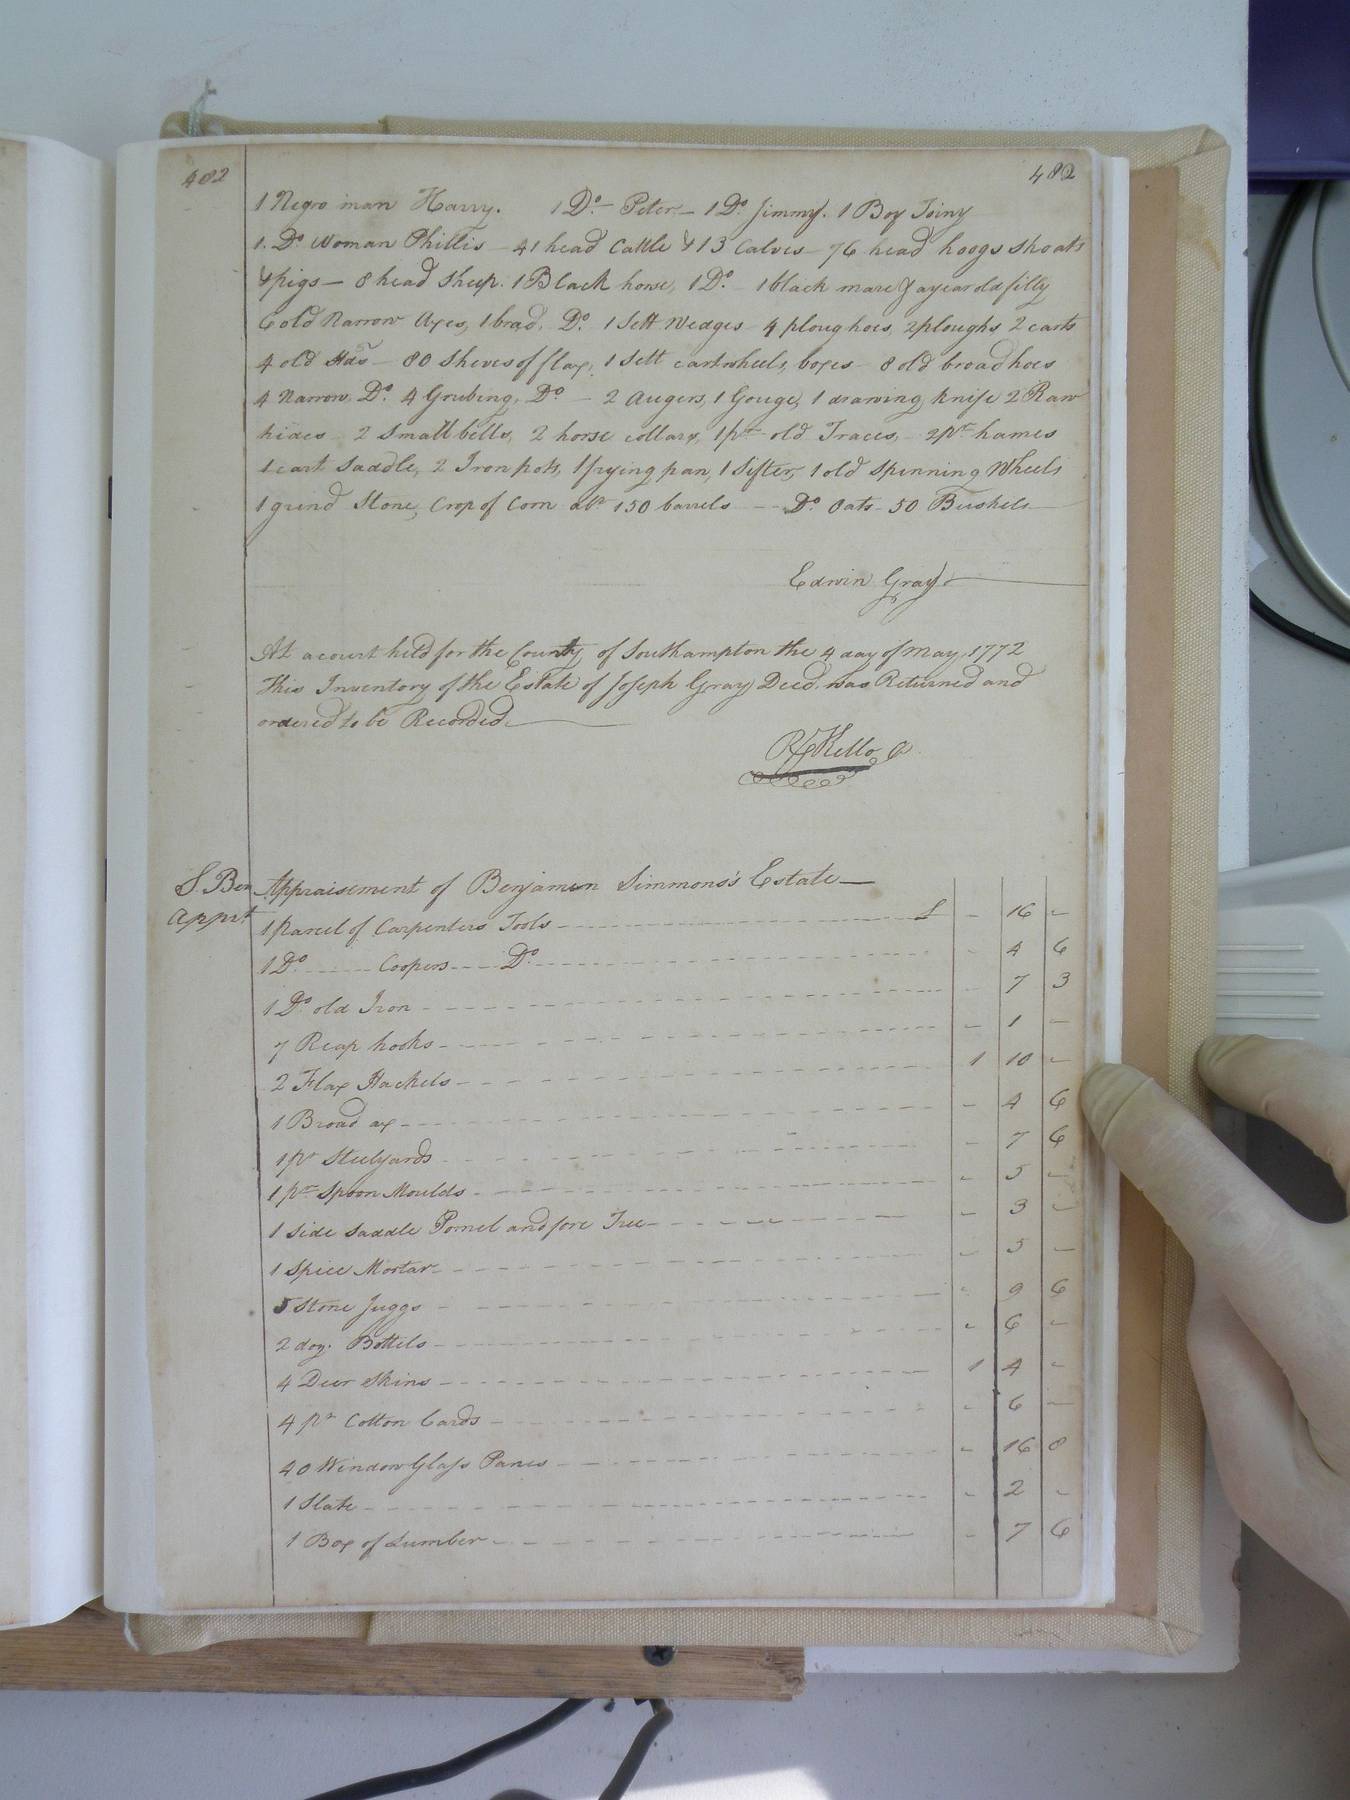 482 482
1 Negro man Harry. 1 Do. Peter - 1 Do. Jimmy. 1 Boy Joiny
1. Do. Woman Phillis - 41 head Cattle & 13 Calves - 76 head hoogs shoats
& pigs - 8 head Sheep. 1 Black horse, 1 Do. - 1 black mare & a year old filly
6 old Narrow Axes, 1 brad. Do. 1 Sett Wedges - 4 plough hoes, 2 ploughs 2 carts
4 old Hds - 80 Sheves of flax, 1 Sett cartwheels, boxes - 8 old broad hoes
4 Narrow, Do. 4 Grubing, Do. - 2 Augers, 1 Gouge, 1 drawing knife 2 Raw
hides - 2 Small bells, 2 horse collars, 1 pr. old Traces, - 2 pr. hames
1 cart Saddle, 2 Iron pots, 1 frying pan, 1 Sifter, 1 old Spinning Wheels
1 grind Stone, Crop of Corn abt. 150 barrels - Do. Oats - 50 Bushels
Edwin Gray
At a court held for the County of Southampton the 4 day of May 1772
This Inventory of the Estate of Joseph Gray Deced. was Returned and
ordered to be Recorded
R Kello
S. Ben Appraisement of Benjamen Simmons's Estate
Apprt
1 Parcel of Carpenters Tools £ - 16 -
1 Do. Coopers Do. - 4 6
1 Do. old Iron - 7 3
7 Reap hooks - 1 -
2 Flax Hackels 1 10 -
1 Broad ax - 4 6
1 pr Steelyards - 7 6
1 pr Spoon Moulds - 5 -
1 Side Saddle Pomel and fore Tree - 3 -
1 Spice Mortar - 5 -
5 Stone Juggs - 9 6
2 doz. Bottels - 6 -
4 Deer Skins 1 4 -
4 pr Cotton Cards - 6 -
40 Window Glass Panes - 16 8
1 Slate - 2 -
1 Box of Lumber - 7 6